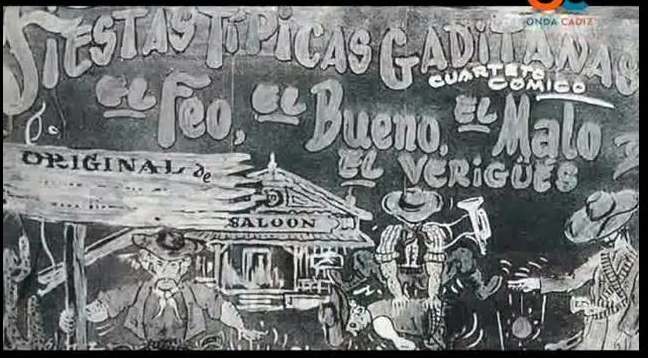 ONDA CADIZ
FIESTAS TÍPICAS GADITANAS
CUARTETO
CÓMICO
EL Feo, EL Bueno, EL Malo
EL VERIGÜES
ORIGINAL de
SALOON